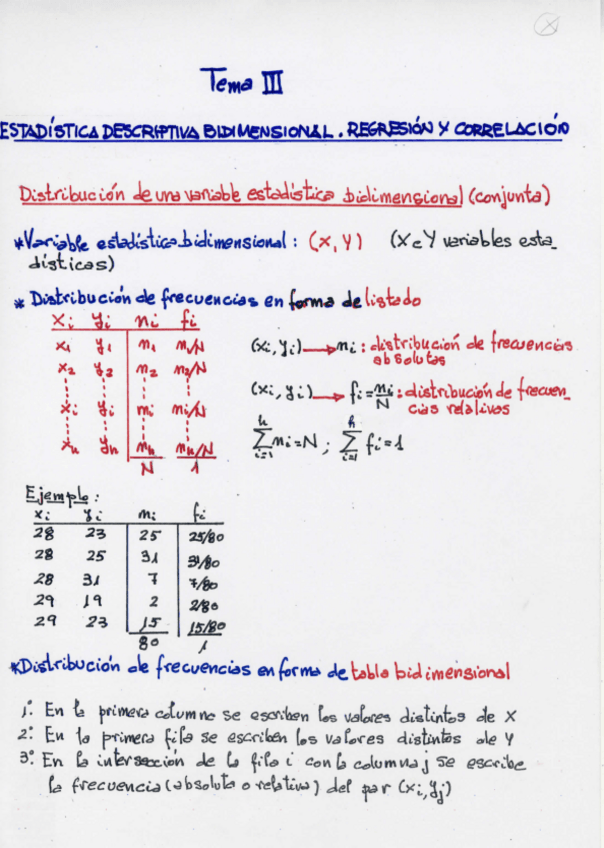 Tema III
ESTADÍSTICA DESCRIPTIVA BIDIMENSIONAL. REGRESIÓN Y CORRELACIÓN
Distribución de una variable estadística bidimensional (conjunta)
*Variable estadística bidimensional: (X, Y) (X e Y variables esta_
dísticas)
* Distribución de frecuencias en forma de listado
xi yi ni fi
x1 y1 n1 n1/N
x2 y2 n2 n2/N
xi yi ni ni/N
xh yh nh nh/N
N 1
(xi, yi) → ni: distribución de frecuencias
absolutas
(xi, yi) → fi = ni/N : distribución de frecuen_
cias relativas
∑_{i=1}^{h} ni = N ; ∑_{i=1}^{h} fi = 1
Ejemplo:
xi yi ni fi
28 23 25 25/80
28 25 31 31/80
28 31 7 7/80
29 19 2 2/80
29 23 15 15/80
80 1
*Distribución de frecuencias en forma de tabla bidimensional
1º: En la primera columna se escriben los valores distintos de X
2º: En la primera fila se escriben los valores distintos de Y
3º: En la intersección de la fila i con la columna j se escribe
la frecuencia (absoluta o relativa) del par (xi, yj)